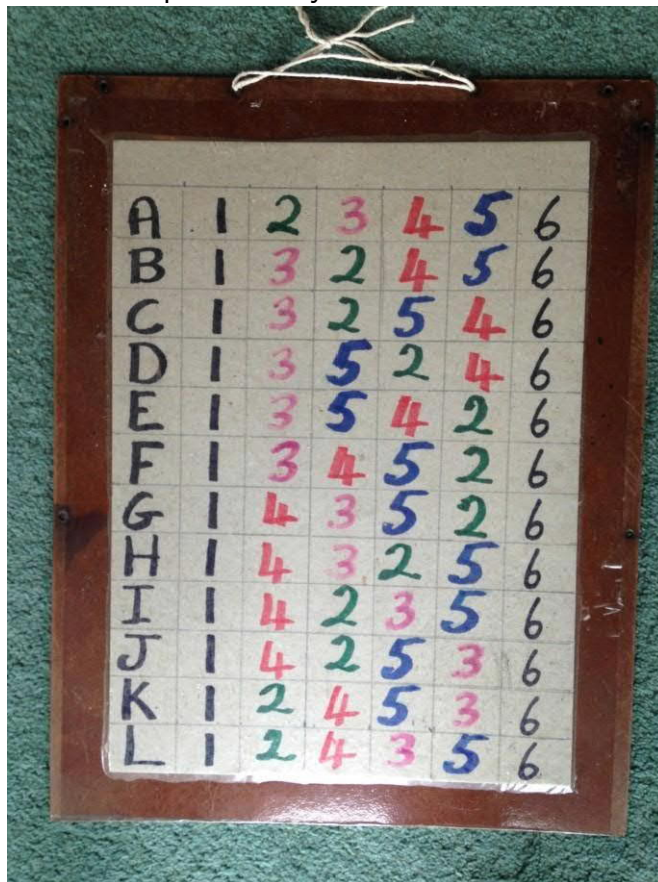 A 1 2 3 4 5 6
B 1 3 2 4 5 6
C 1 3 2 5 4 6
D 1 3 5 2 4 6
E 1 3 5 4 2 6
F 1 3 4 5 2 6
G 1 4 3 5 2 6
H 1 4 3 2 5 6
I 1 4 2 3 5 6
J 1 4 2 5 3 6
K 1 2 4 5 3 6
L 1 2 4 3 5 6